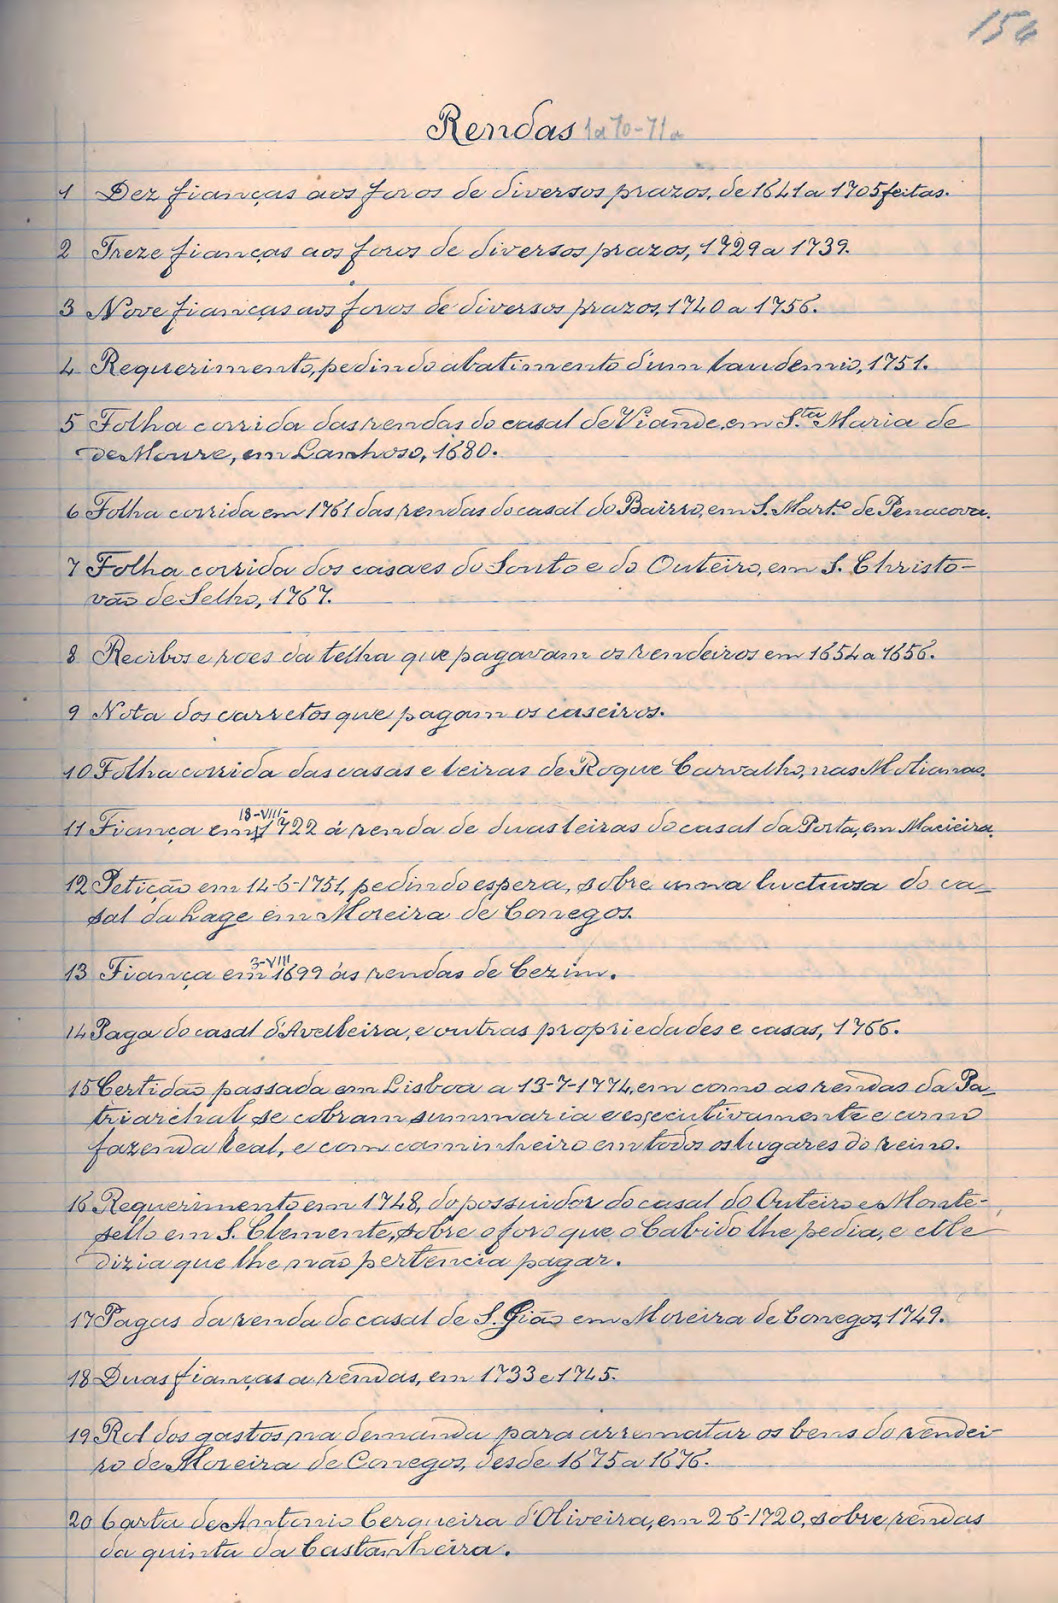 156
Rendas 1 a 70-71a
1 Dez fianças aos foros de diversos prazos, de 1641 a 1705 feitas.
2 Treze fianças aos foros de diversos prazos, 1729 a 1739.
3 Nove fianças aos foros de diversos prazos, 1740 a 1756.
4 Requerimento, pedindo abatimento d'um laudemio, 1751.
5 Folha corrida das rendas do casal de Viande, em S.ta Maria de
de Moure, em Lanhoso, 1680.
6 Folha corrida em 1761 das rendas do casal do Bairro, em S. Mart.o de Penacova.
7 Folha corrida dos casaes do Souto e do Outeiro, em S. Christo-
vão de Selho, 1767.
8 Recibos e roes da telha que pagavam os rendeiros em 1654 a 1656.
9 Nota dos carretos que pagam os caseiros.
10 Folha corrida das casas e leiras de Roque Carvalho, nas Molianas.
18-VIII-
11 Fiança em 1722 á renda de duas leiras do casal da Porta, em Macieira.
12 Petição em 14-6-1751, pedindo espera, sobre uma luctuosa do ca-
sal da Lage em Moreira de Conegos.
3-VIII
13 Fiança em 1699 ás rendas de Cezim.
14 Paga do casal d'Avelleira, e outras propriedades e casas, 1766.
15 Certidão passada em Lisboa a 13-7-1774, em como as rendas da Pa-
triarchal, se cobram summaria e executivamente e como
fazenda real, e com caminheiro em todos os lugares do reino.
16 Requerimento em 1748, do possuidor do casal do Outeiro e Monte-
sello em S. Clemente, sobre o foro que o Cabido lhe pedia, e elle
dizia que lhe não pertencia pagar.
17 Pagas da renda do casal de S. Gião em Moreira de Conegos, 1749.
18 Duas fianças a rendas, em 1733 e 1745.
19 Rol dos gastos, na demanda para arrematar os bens do rendei-
ro de Moreira de Conegos, desde 1675 a 1676.
20 Carta de Antonio Cerqueira d'Oliveira, em 2-6-1720, sobre rendas
da quinta da Castanheira.